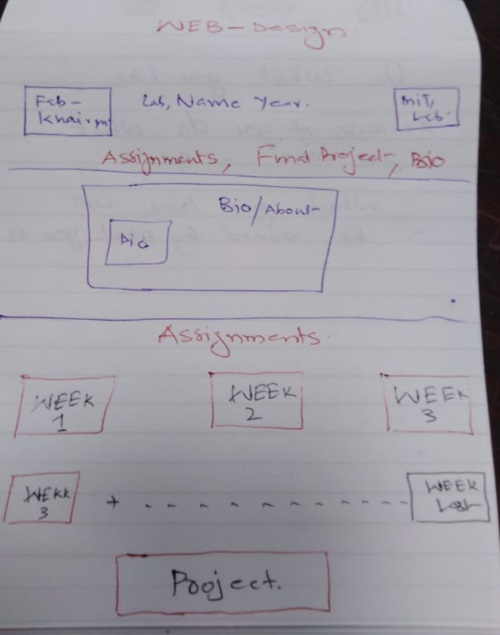 WEB-Design
Fab- Lab, Name Year. MIT,
Khairpur Lab.
Assignments, Final Project, Bio
Bio/About
Pic
Assignments
WEEK WEEK WEEK
1 2 3
WEKK + - - - - - - - - - - WEEK
3 Last
Project.